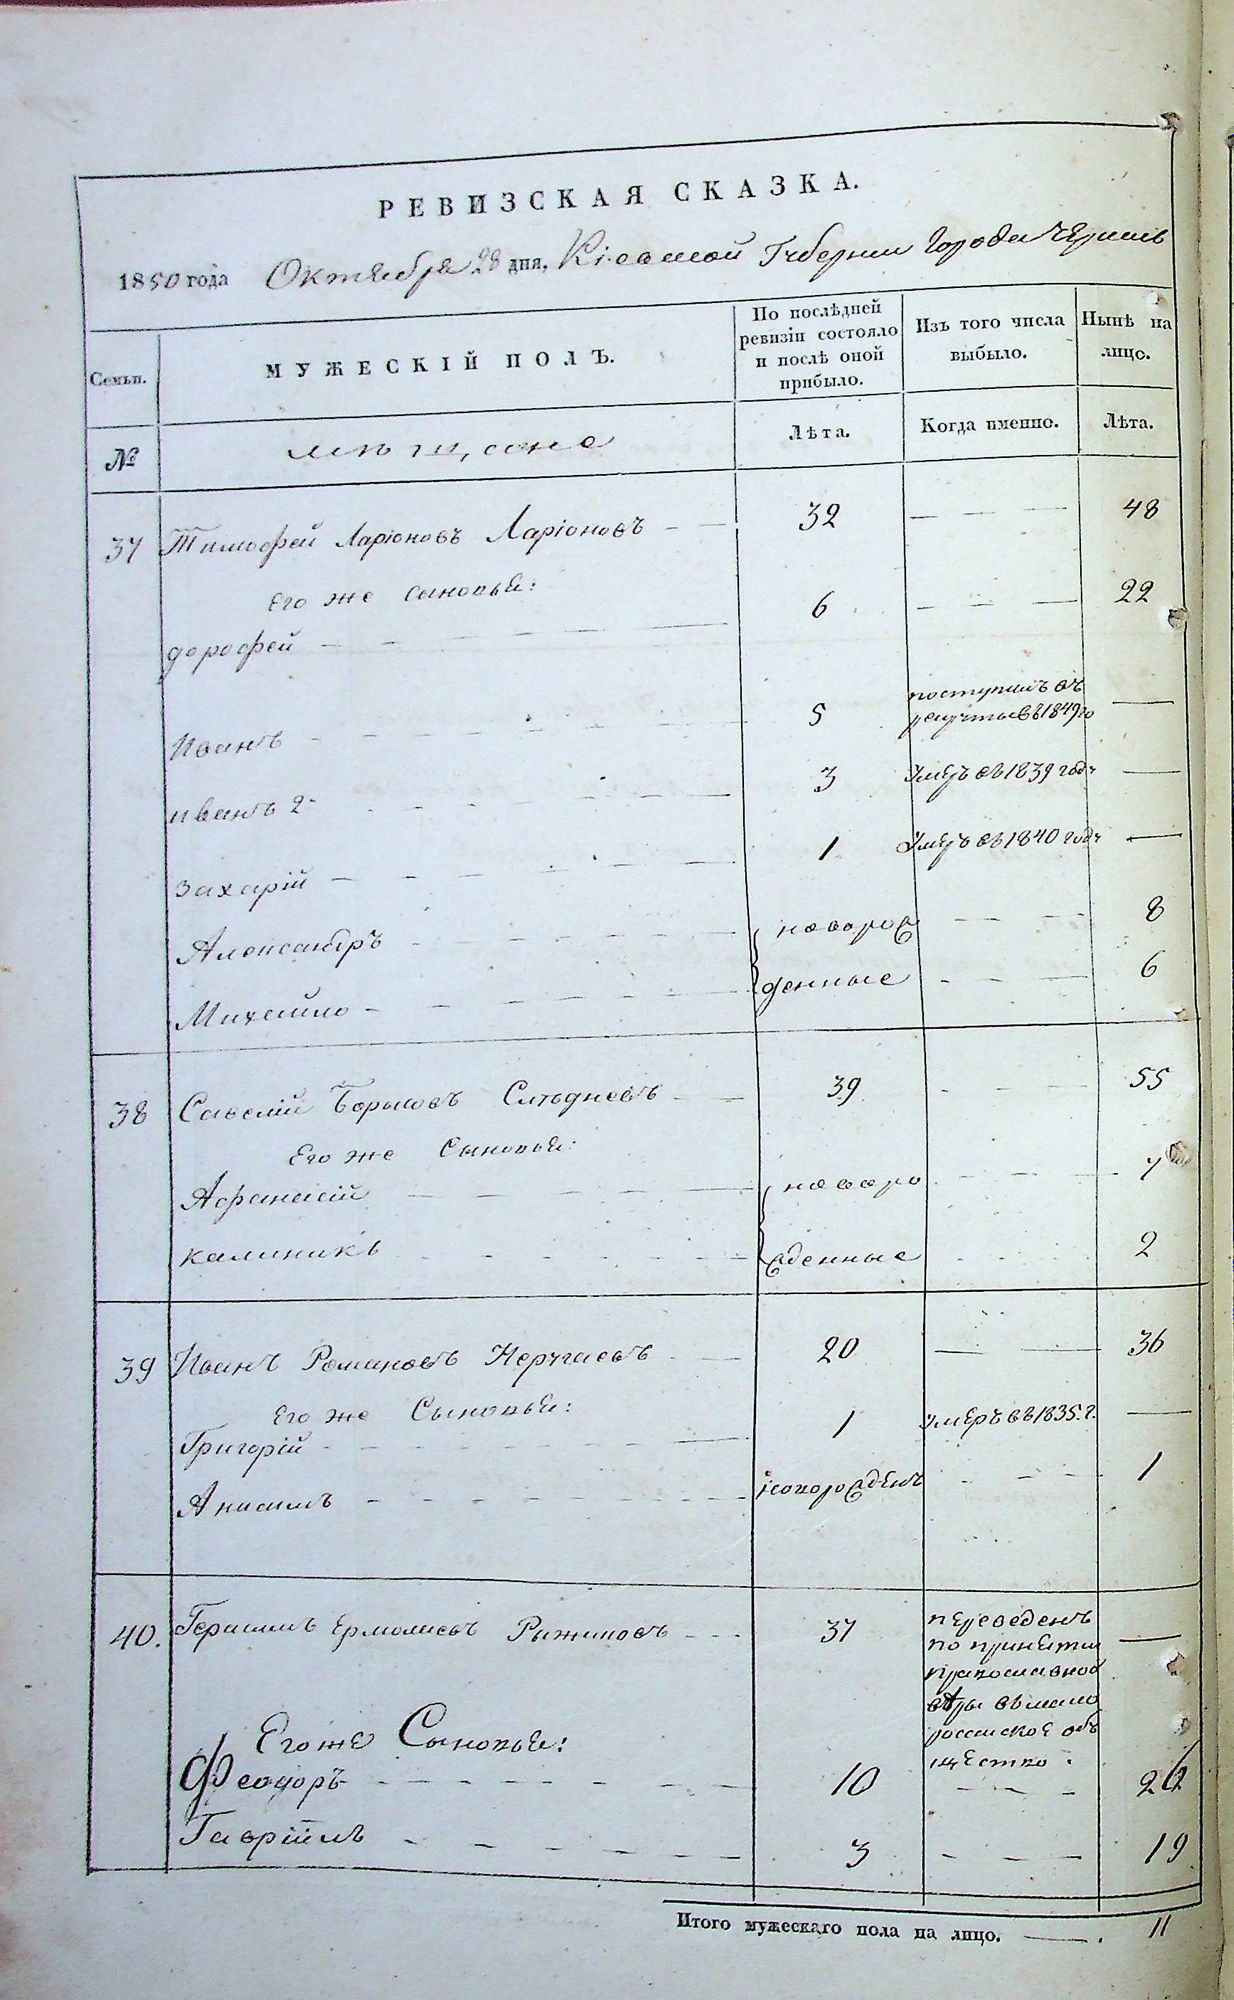 РЕВИЗСКАЯ СКАЗКА.
1850 года Октября 28 дня, Кіевской Губерніи Города
Семьи. МУЖЕСКІЙ ПОЛЪ. По послѣдней ревизіи состояло и послѣ оной прибыло. Изъ того числа выбыло. Нынѣ на лицо.
№ мѣщане Лѣта. Когда именно. Лѣта.
37 Тимофей Ларіоновъ Ларіоновъ 32 48
Его же Сыновья:
дорофей 6 22
Иванъ 5 поступилъ въ рекруты въ 1849 го
иванъ 2- 3 Умеръ въ 1839 году
Захарій 1 Умеръ въ 1840 году
Александръ новорож 8
Михайло денные 6
38 Савелій Борисовъ 39 55
Его же Сыновья:
Афанасій новоро 7
Калиникъ жденные 2
39 Иванъ Романовъ 20 36
Его же Сыновья:
Григорій 1 умеръ въ 1835 г.
Анисимъ новорожденъ 1
40. Герасимъ Ермолаевъ Рыжиковъ 37 переведенъ
по принятіи
православной
вѣры въ мало
россійское об
щество.
Его же Сыновья:
Феодоръ 10 26
Гавріилъ 3 19
Итого мужескаго пола на лицо. 11